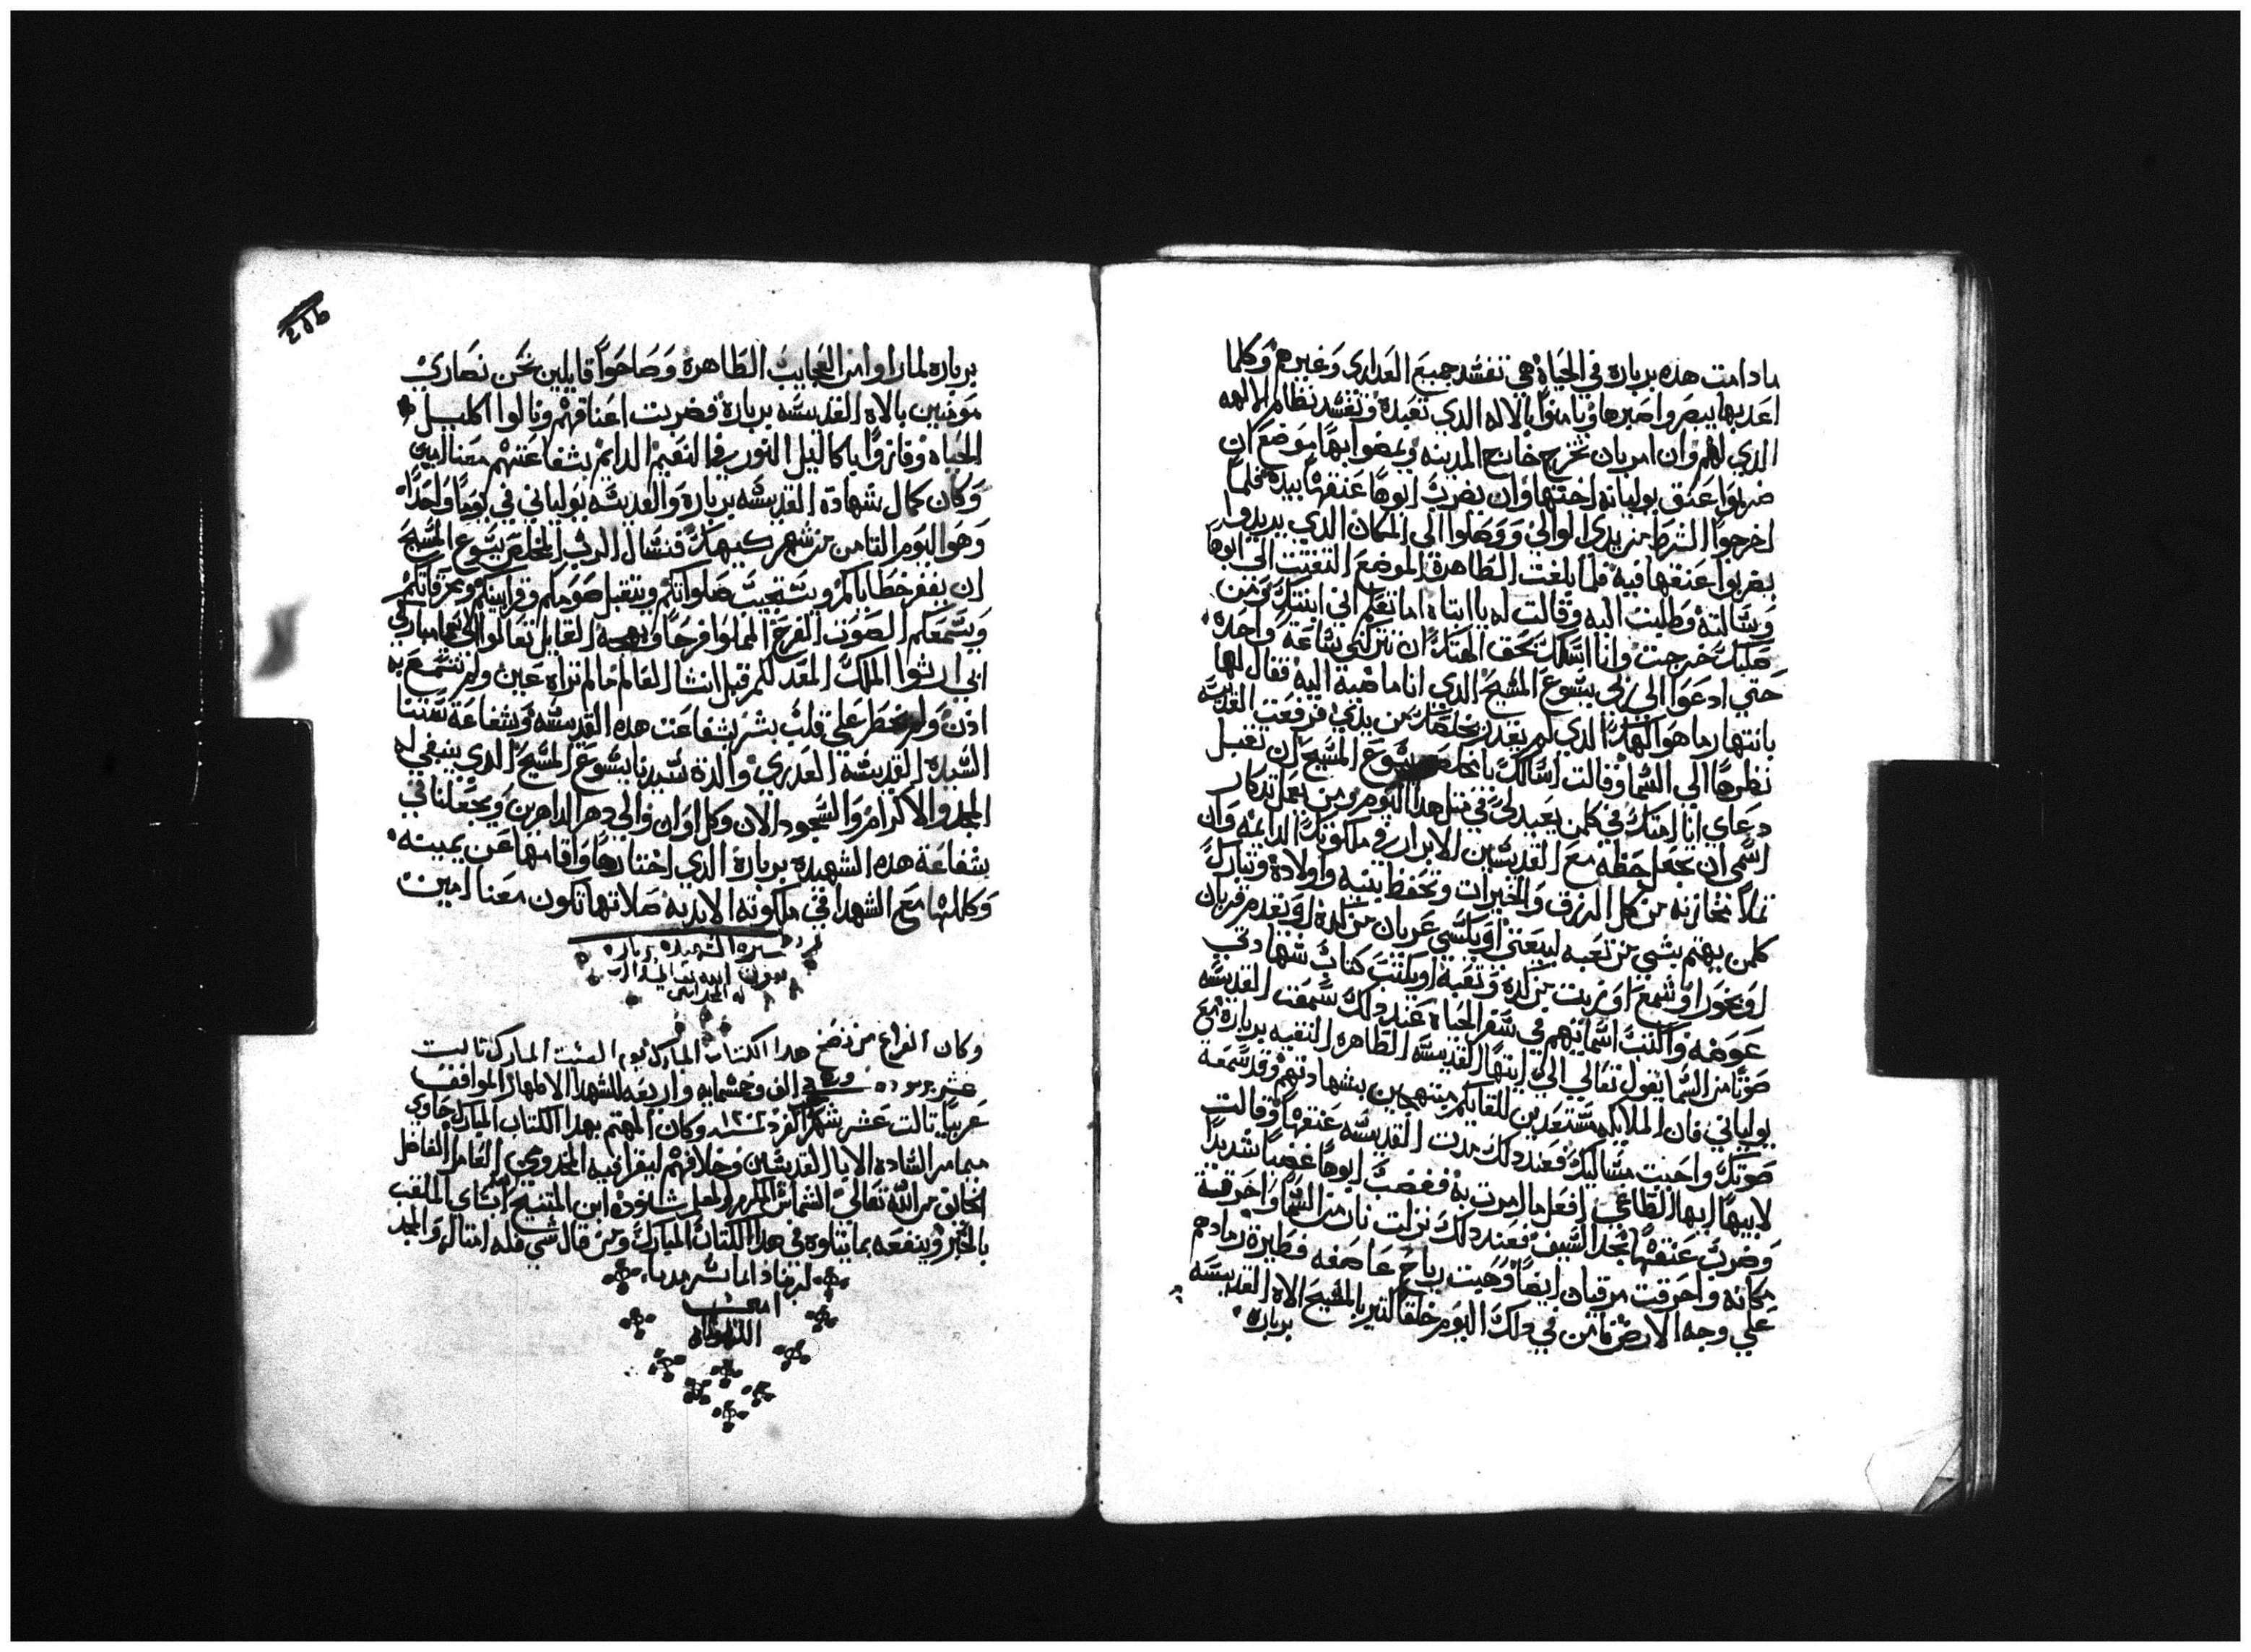 ما دامت هذه برباره في الحياة هي تفسد جميع العداري وغيرهم وكلما
اعدبها يبصروا صبرها ويامنوا بالاله الدي تعبده وتفسد نظام الالهه
الدي لهم وان امر بان تخرج خارج المدينه ويمضوا بها موضع ان
ضربوا عنق يوليانه اختها وان يضرب ابوها عنقها بيده فلما
اخرجوا الشرط من يدي الوالي ووصلوا الي المكان الدي يريدوا
يضربوا عنقها فيه فلما بلغت الطاهرة الموضع التفتت الي ابوها
وسالته وطلبت اليه وقالت له يا ابتاه اما تعلم اني ابنتك ومن
صلبك خرجت وانا اسلك بحق الهتك ان تتركني ساعه واحده
حتي ادعوا الي ربي يسوع المسيح الدي انا ماضية اليه فقال لها
بانتهار ما هو الهك الدي لم يقدر يخلصك من يدي فرفعت القديسه
نظرها الي السما وقالت اسالك يا مخلص يسوع المسيح ان تقبل
دعاي انا امتك في كلمن يعيد لي في مثل هدا اليوم ومن يعمل تدكار
اسمي ان تجعل حظه مع القديسين الابرار في ملكوتك الدايمه وان
تملا مخازنه من كل الرزق والخيرات وتحفظ بنيه واولاده وتبارك
كلمن يهتم بشي من تعبه ليبعني او يكسي عريان من كده او يقدم قربان
او بخور او شمع او زيت من كده وتعبه او يكتب كتاب شهادتي
عوضه واكتب اسمايهم في سفر الحياة عند دلك سمعت القديسه
صوتا من السما يقول تعالي الي ايتها القديسه الطاهره النقيه برباره مع
يولياني فان الملايكه مستعدين للقايكم مبتهجين بشهادتهم وقد سمعة
صوتك واجبت مسالتك فعند دلك مدت القديسه عنقها وقالت
لابيها ايها الطاغي افعل ما امرت به فغضب ابوها غضبا شديدا
وضرب عنقها بحد السيف فعند دلك نزلت نار من السما واحرقته
مكانه واحرقت مرقيان ايضا وهبت رياح عاصفه فطيرة رمادهم
علي وجه الارض فامن في دلك اليوم خلقا كتير بالمسيح الاه القديسه
برباره
برباره لما راوا من العجايب الظاهرة وصاحوا قايلين نحن نصاري
مومنين بالاه القديسه برباره فضربت اعناقهم ونالوا اكليل
الحياه وفازوا باكاليل النور في النعيم الدايم بشفاعتهم معنا امين
وكان كمال شهادة القديسه برباره والقديسه يولياني في يوما واحدا
وهو اليوم التامن من شهر كيهك فنسال الرب المخلص يسوع المسيح
ان يغفر خطاياكم ويستجيب صلواتكم ويتقبل صومكم وقرابينكم ومحرقاتكم
ويسمعكم الصوت الفرح المملوا فرحا وبهجه القايل تعالوا الي يا مباركي
ابي ارثوا الملك المعد لكم قبل انشا العالم ما لم تراه عين ولم تسمع به
ادن ولم يخطر علي قلب بشر بشفاعت هده القديسه وبشفاعة ستنا
السيده القديسه العدري والدة سيدنا يسوع المسيح الدي ينبغي له
المجد والاكرام والسجود الان وكل اوان والي دهر الداهرين ويجعلنا في
بشفاعة هده الشهيده برباره الدي اختارها واقامها عن يمينه
وكللها مع الشهدا في ملكوته الابديه صلاتها تكون معنا امين
سيرة الشهيده برباره
بعون الله
له المجد امين
وكان الفراغ من نضخ هدا الكتاب المبارك يوم السبت المبارك تالت
عشر برموده الف وخمسمايه واربعه للشهدا الاطهار الموافق
عربيا تالت عشر شهر ١٢٠٢ وكان المهتم بهدا الكتاب المبارك حاوي
ميامر الساده الابا القديسين وخلافهم ليقرا فيه العامل الفاضل
الخايف من الله تعالي الشماس المكرم المعلم شنوده ابن المتنيح الملقب
بالخير وينفعه بما يتلوه في هدا الكتاب المبارك ومن قال شي فله امتاله والمجد
لربنا دايما سرمديا
امين